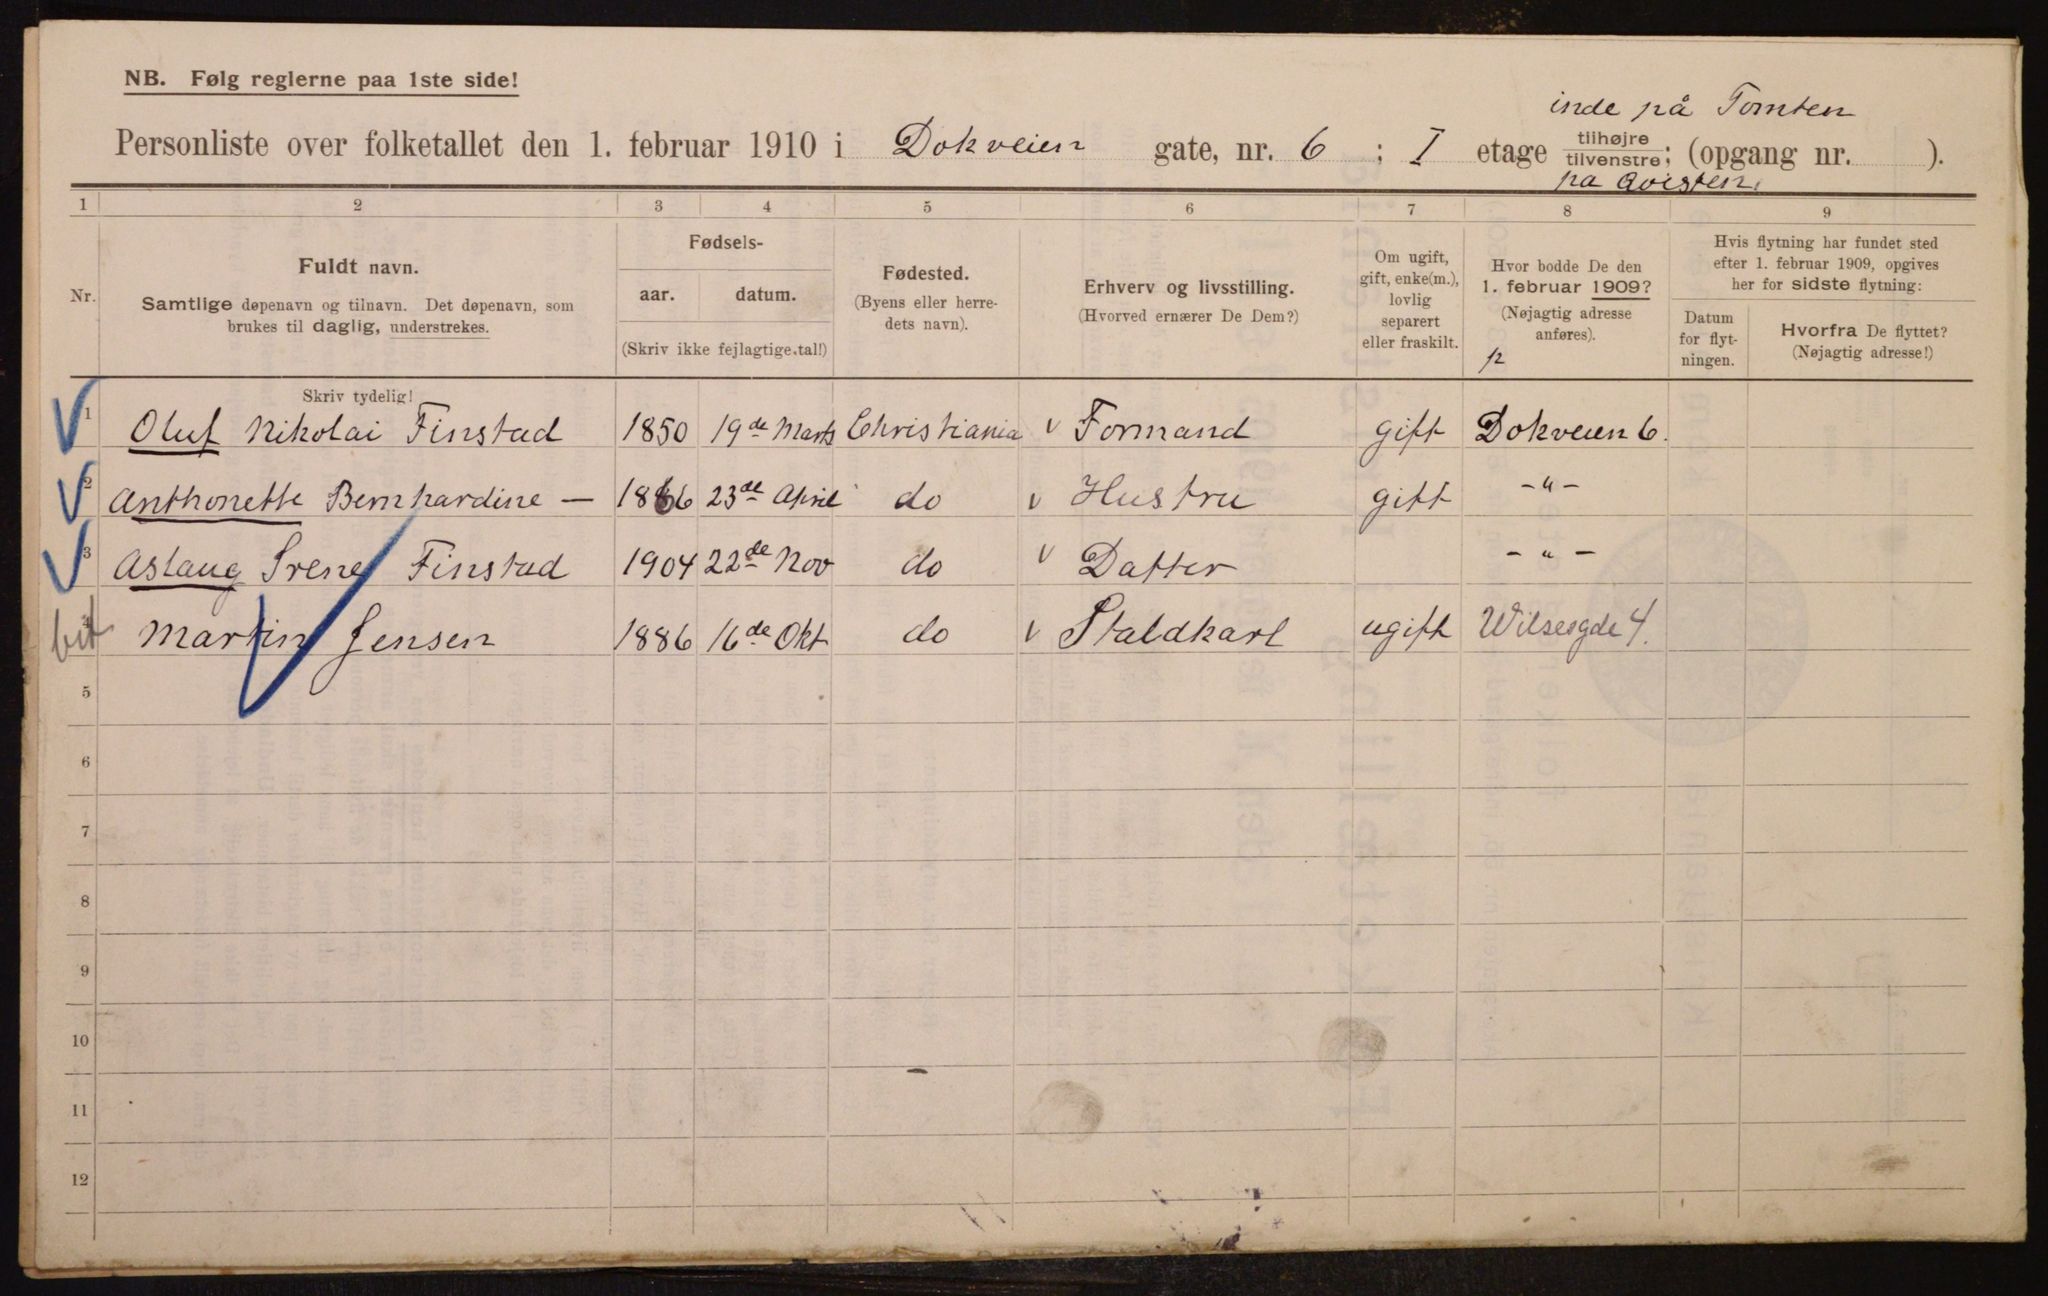 NB. Følg reglerne paa 1ste side!
inde på Tomten
Personliste over folketallet den 1. februar 1910 i Dokveien gate, nr. 6 ; I etage tilhøjre tilvenstre; (opgang nr. ).
pa Qvisten.
1 2 3 4 5 6 7 8 9
Nr.
Fuldt navn.
Samtlige døpenavn og tilnavn. Det døpenavn, som
brukes til daglig, understrekes.
Fødsels-
aar. datum.
(Skriv ikke fejlagtige tal!)
Fødested.
(Byens eller herre-
dets navn).
Erhverv og livsstilling.
(Hvorved ernærer De Dem?)
Om ugift,
gift, enke(m.),
lovlig
separert
eller fraskilt.
Hvor bodde De den
1. februar 1909?
(Nøjagtig adresse
anføres).
Hvis flytning har fundet sted
efter 1. februar 1909, opgives
her for sidste flytning:
Datum
for flyt-
ningen.
Hvorfra De flyttet?
(Nøjagtig adresse!)
Skriv tydelig!
1 Oluf Nikolai Finstad 1850 19de Marts Christiania Formand gift Dokveien 6.
2 Anthonette Bernhardine — 1866 23de April do Hustru gift -"-
3 Aslaug Irene Finstad 1904 22de Nov do Datter -"-
4 Martin Jensen 1886 16de Okt do Staldkarl ugift Wilsesgde 4.
5
6
7
8
9
10
11
12